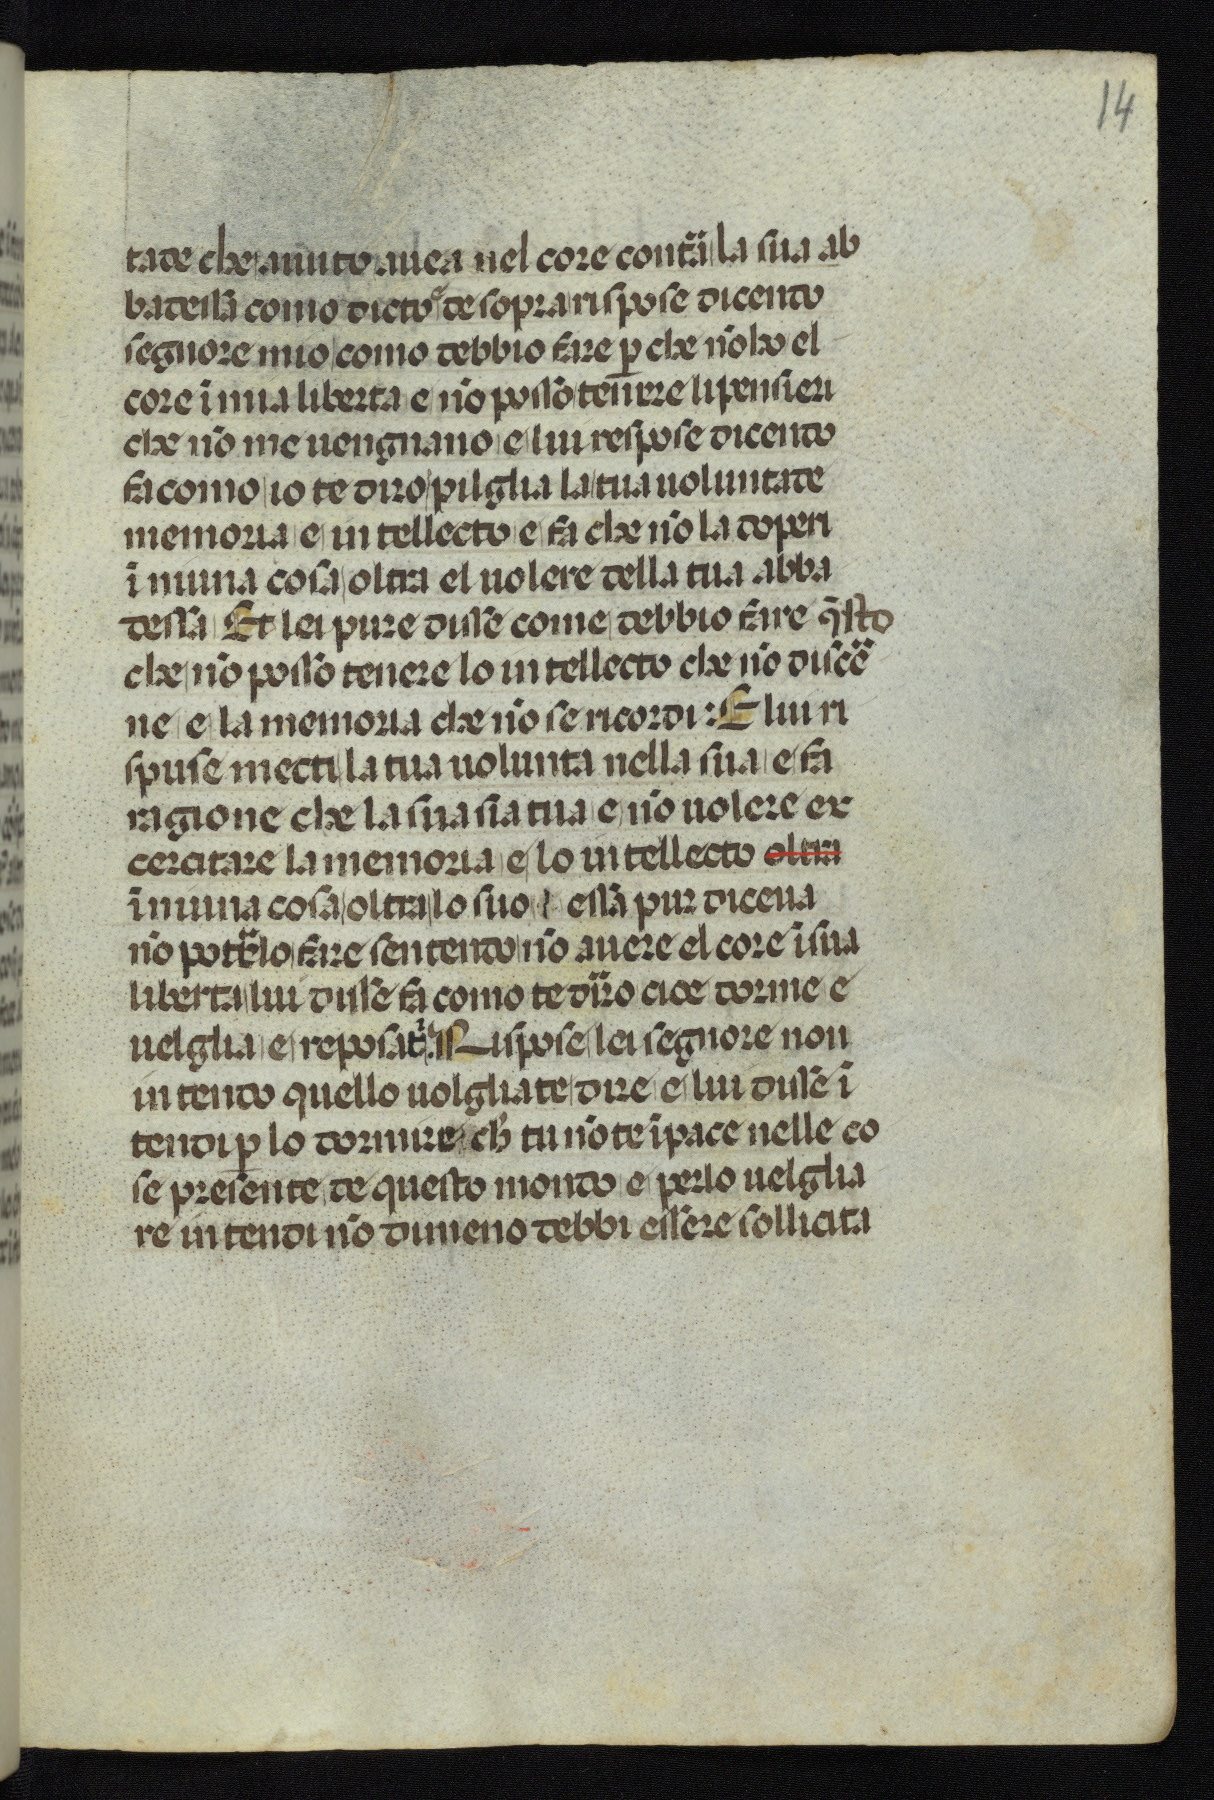 14
tade che auuto auea nel core contã la sua ab
badessa como dicto de sopra rispose dicendo
segnore mio como debbio fare ꝑ che nõ ho el
core ĩ mia liberta e nõ posso tenere li pensieri
che nõ me uengnano e lui respose dicendo
fa como io te diro pilglia la tua uoluntade
memoria e intellecto e fa che nõ la doperi
ĩ niuna cosa oltra el uolere della tua abba
dessa Et lei pure disse come debbio fare q̃sto
che nõ posso tenere lo intellecto che nõ discẽ
ne e la memoria che nõ se ricordi : E lui ri
spuse mecti la tua uolunta nella sua e fa
ragione che la sua sia tua e nõ uolere ex
cercitare la memoria e lo intellecto oltra
ĩ niuna cosa oltra lo suo essa pur diceua
nõ poterlo fare sentendo nõ auere el core ĩ sua
liberta lui disse fa como te diro cioe dorme e
uelglia e reposate Rispose lei segnore non
intendo quello uolgliate dire e lui disse ĩ
tendi ꝑ lo dormire ch̃ tu nõ te ĩpace nelle co
se presente de questo mondo e perlo uelglia
re intendi nõ dimeno debbi essere sollicita